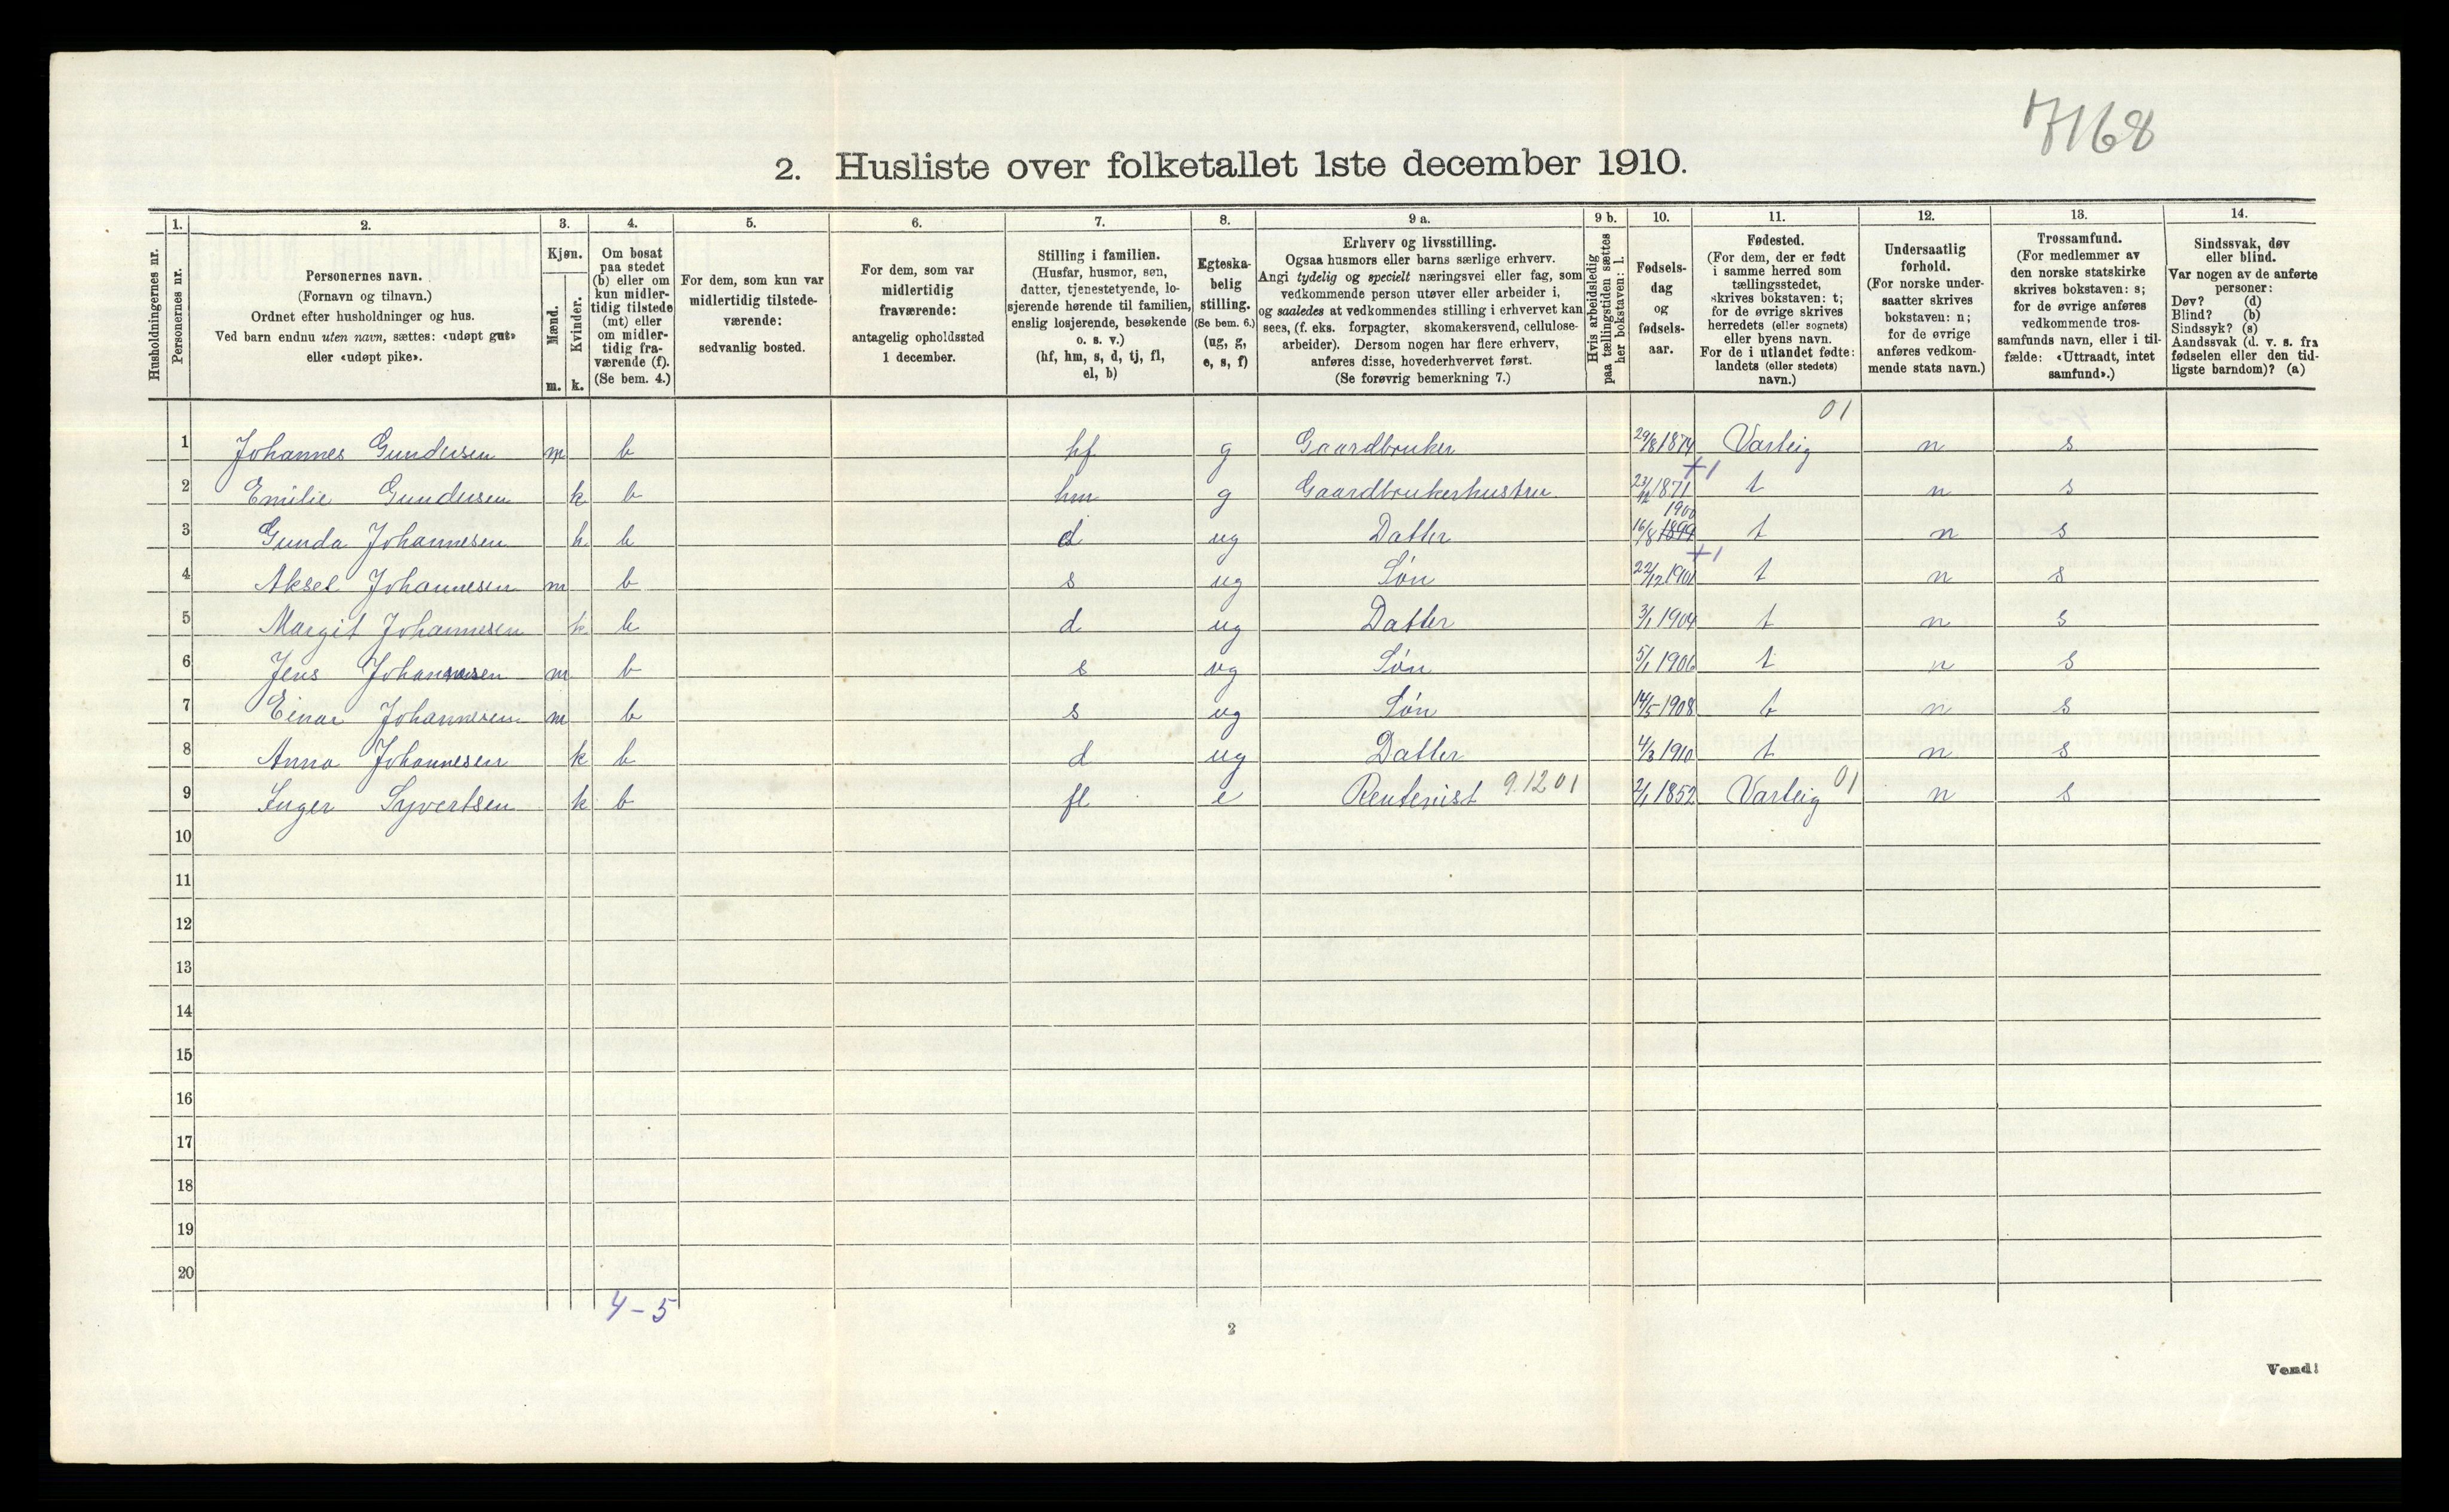 7168
2. Husliste over folketallet 1ste december 1910.
1. 2. 3. 4. 5. 6. 7. 8. 9 a. 9 b. 10. 11. 12. 13. 14.
Husholdningernes nr.
Personernes nr.
Personernes navn.
(Fornavn og tilnavn.)
Ordnet efter husholdninger og hus.
Ved barn endnu uten navn, sættes: «udøpt gut»
eller «udøpt pike».
Kjøn.
Mænd.
Kvinder.
m. k.
Om bosat
paa stedet
(b) eller om
kun midler-
tidig tilstede
(mt) eller
om midler-
tidig fra-
værende (f).
(Se bem. 4.)
For dem, som kun var
midlertidig tilstede-
værende:
sedvanlig bosted.
For dem, som var
midlertidig
fraværende:
antagelig opholdssted
1 december.
Stilling i familien.
(Husfar, husmor, søn,
datter, tjenestetyende, lo-
sjerende hørende til familien,
enslig losjerende, besøkende
o. s. v.)
(hf, hm, s, d, tj, fl,
el, b)
Egteska-
belig
stilling.
(Se bem. 6.)
(ug, g,
e, s, f)
Erhverv og livsstilling.
Ogsaa husmors eller barns særlige erhverv.
Angi tydelig og specielt næringsvei eller fag, som
vedkommende person utøver eller arbeider i,
og saaledes at vedkommendes stilling i erhvervet kan
sees, (f. eks. forpagter, skomakersvend, cellulose-
arbeider). Dersom nogen har flere erhverv,
anføres disse, hovederhvervet først.
(Se forøvrig bemerkning 7.)
Hvis arbeidsledig
paa tællingstiden sættes
her bokstaven: l.
Fødsels-
dag
og
fødsels-
aar.
Fødested.
(For dem, der er født
i samme herred som
tællingsstedet,
skrives bokstaven: t;
for de øvrige skrives
herredets (eller sognets)
eller byens navn.
For de i utlandet fødte:
landets (eller stedets)
navn.)
Undersaatlig
forhold.
(For norske under-
saatter skrives
bokstaven: n;
for de øvrige
anføres vedkom-
mende stats navn.)
Trossamfund.
(For medlemmer av
den norske statskirke
skrives bokstaven: s;
for de øvrige anføres
vedkommende tros-
samfunds navn, eller i til-
fælde: «Uttraadt, intet
samfund».)
Sindssvak, døv
eller blind.
Var nogen av de anførte
personer:
Døv? (d)
Blind? (b)
Sindssyk? (s)
Aandssvak (d. v. s. fra
fødselen eller den tid-
ligste barndom)? (a)
01
1 Johannes Gundersen m b hf g Gaardbruker 29/8 1874 Varteig n s
+1
2 Emilie Gundersen k b hm g Gaardbrukerhustru 23/12 1871 t n s
1900
3 Gunda Johannesen k b d ug Datter 16/8 1899 t n s
+1
4 Aksel Johannesen m b s ug Søn 22/12 1901 t n s
5 Margit Johannesen k b d ug Datter 3/1 1904 t n s
6 Jens Johannesen m b s ug Søn 5/1 1906 t n s
7 Einar Johannesen m b s ug Søn 14/5 1908 t n s
8 Anna Johannesen k b d ug Datter 4/3 1910 t n s
9 Inger Syvertsen k b fl e Rentenist 9.1201 2/1 1852 Varteig 01 n s
10
11
12
13
14
15
16
17
18
19
20
4-5
2
Vend!